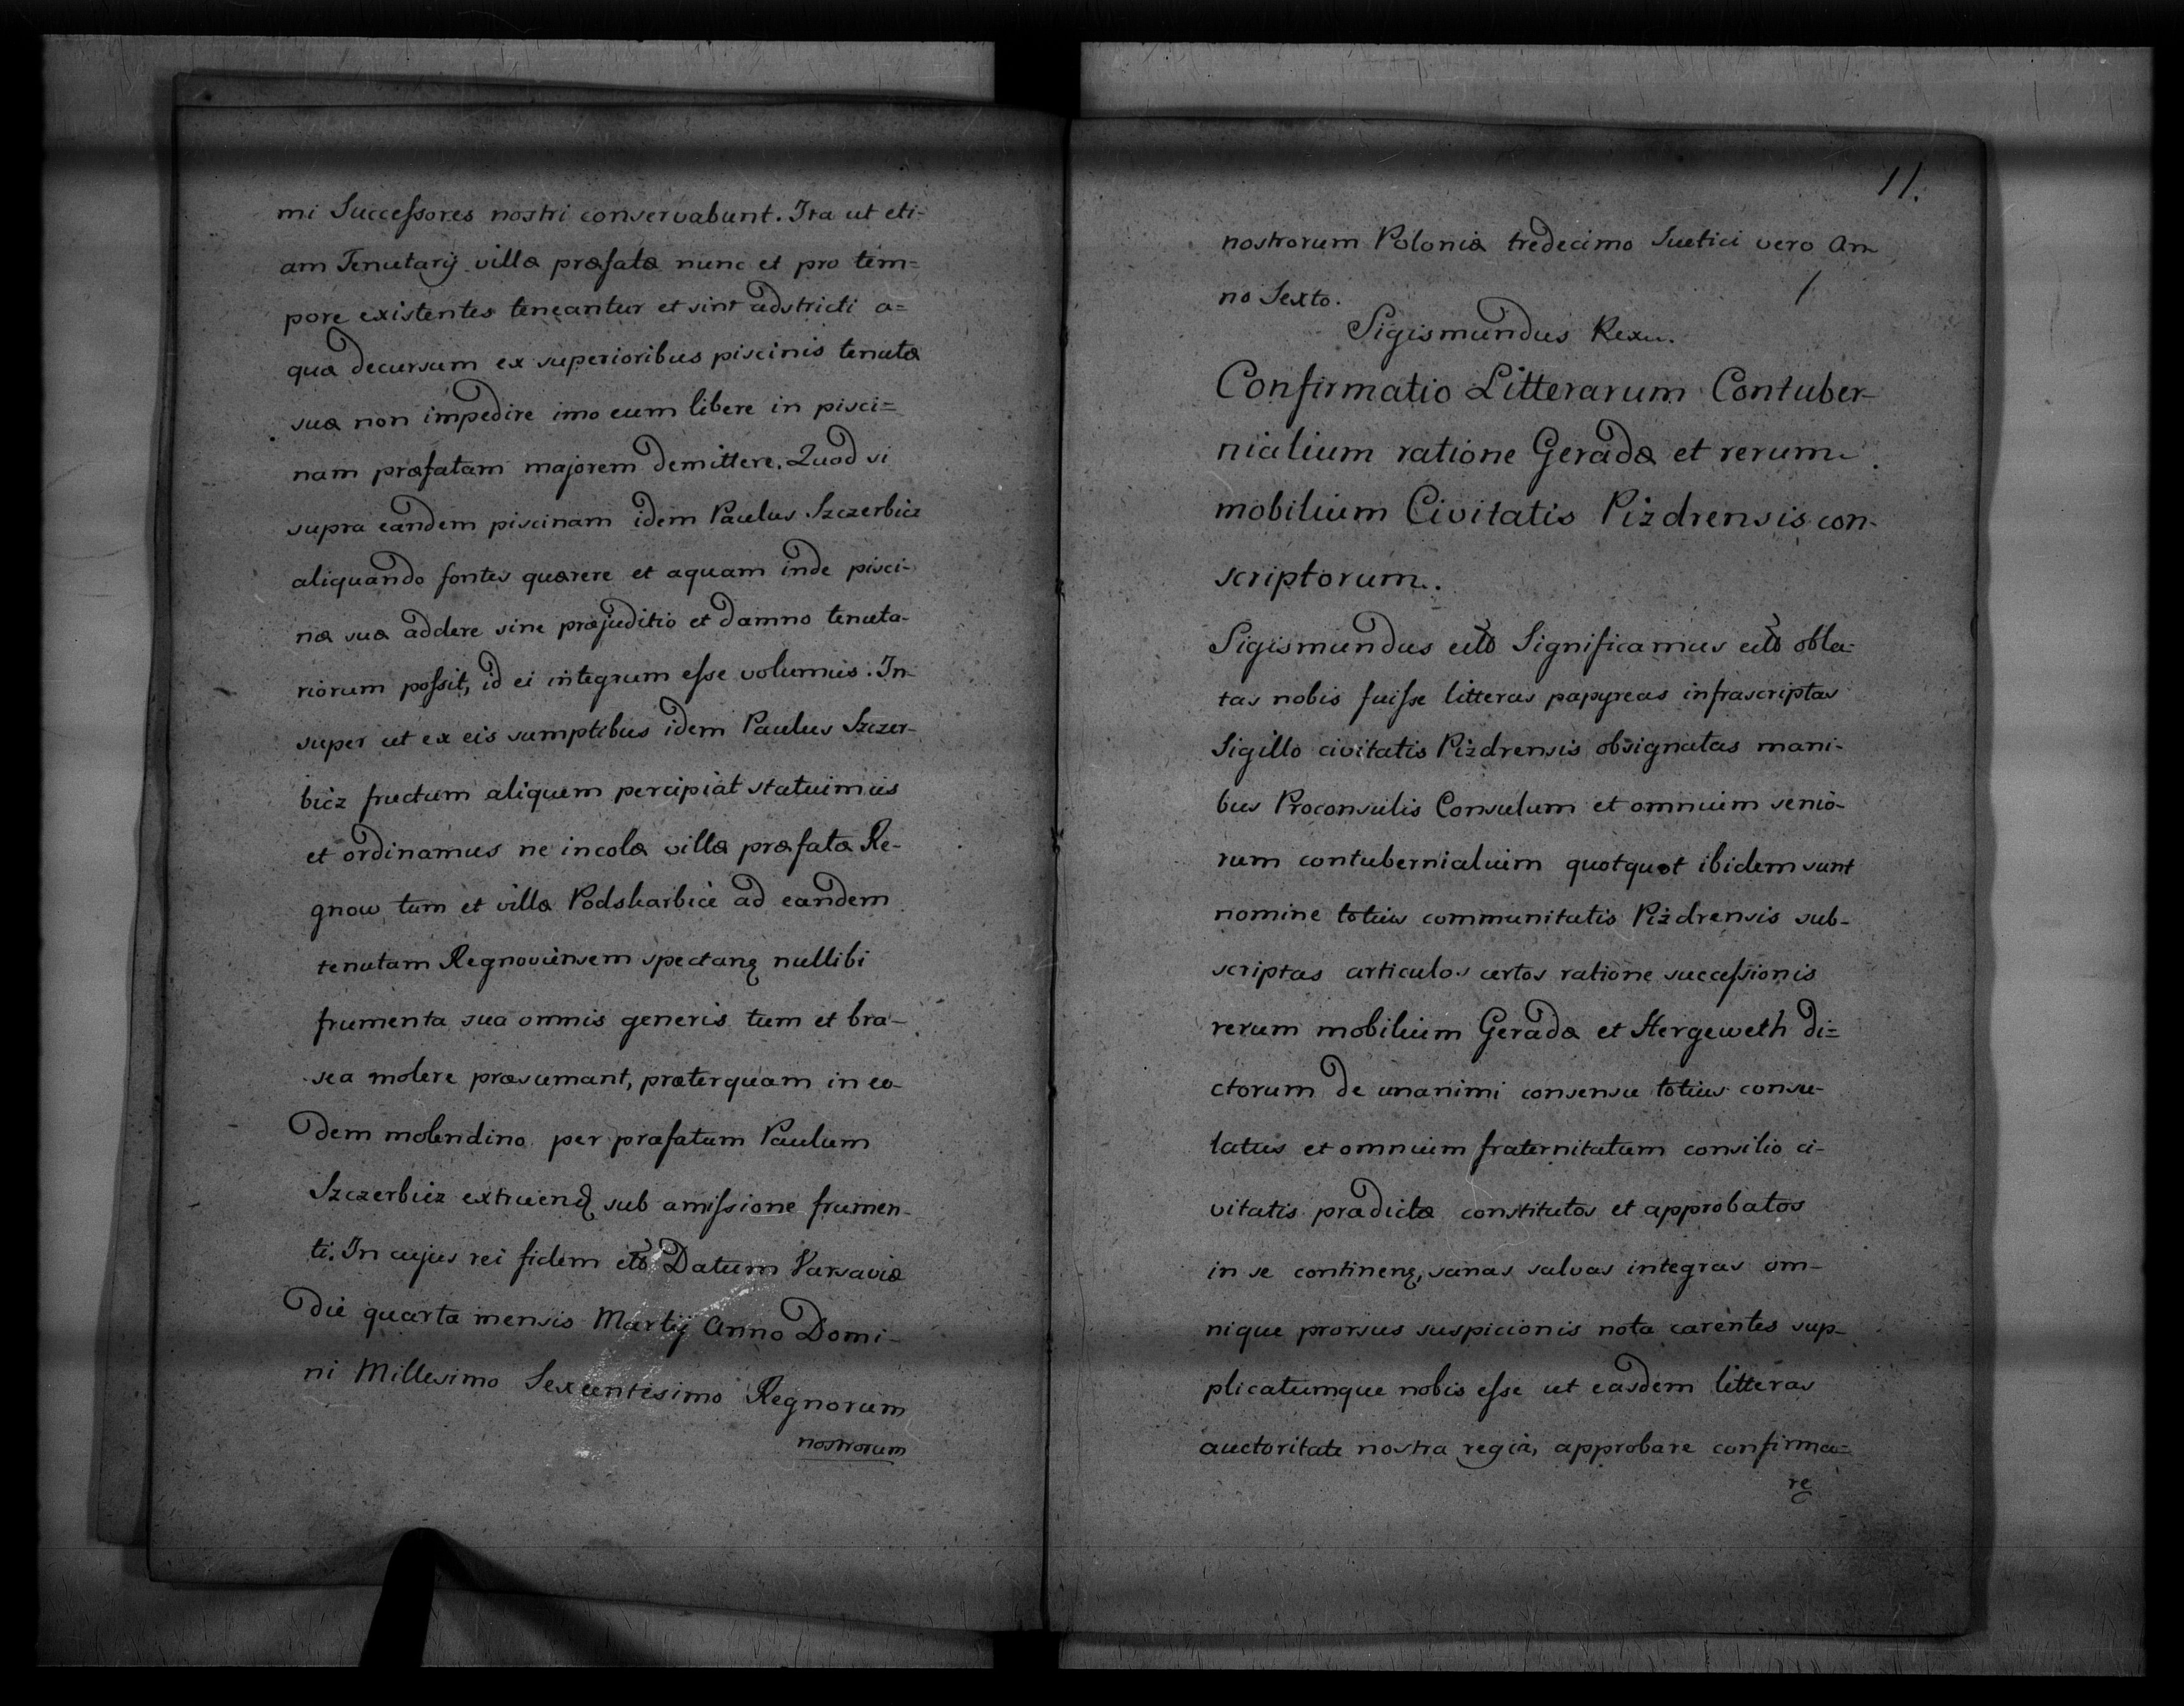 mi Successores nostri conservabunt. Ita ut eti-
am Tenutarij villæ præfatæ nunc et pro tem=
pore existentes teneantur et sint adstricti a=
quæ decursum ex superioribus piscinis tenutæ
suæ non impedire imo eum libere in pisci=
nam præfatam majorem demittere. Quod si
supra eandem piscinam idem Paulus Szczerbicz
aliquando fontes quærere et aquam inde pisci-
næ suæ addere sine præjuditio et damno tenuta-
riorum possit, id ei integrum esse volumus. In-
super ut ex eis sumptibus idem Paulus Szczer-
bicz fructum aliquem percipiat statuimus
et ordinamus ne incolæ villæ præfatæ Re-
gnow tum et villæ Podskarbice ad eandem
tenutam Regnoviensem spectanꝫ nullibi
frumenta sua omnis generis tum et bra-
sea molere præsumant, præterquam in eo-
dem molendino per præfatum Paulum
Szczerbicz extruenđ sub amissione frumen-
ti. In cujus rei fidem etc Datum Varsaviæ
die quarta mensis Martij Anno Domi-
ni Millesimo Sexcentesimo Regnorum
nostrorum
11.
nostrorum Poloniæ tredecimo Suetici vero An
no Sexto.
Sigismundus Rex.
Confirmatio Litterarum Contuber-
nialium ratione Geradæ et rerum
mobilium Civitatis Pizdrensis con-
scriptorum.
Sigismundus etc Significamus etc obla-
tas nobis fuisse litteras papyreas infrascriptas
Sigillo civitatis Pizdrensis obsignatas mani-
bus Proconsulis Consulum et omnium senio-
rum contubernialium quotquot ibidem sunt
nomine totius communitatis Pizdrensis sub-
scriptas articulos certos ratione successionis
rerum mobilium Geradæ et Hergeweth di=
ctorum de unanimi consensu totius consu-
latus et omnium fraternitatum consilio ci-
vitatis prædictæ constitutos et approbatos
in se continenꝫ, sanas salvas integras om-
nique prorsus suspicionis nota carentes sup-
plicatumque nobis esse ut easdem litteras
auctoritate nostra regia, approbare confirma=
re